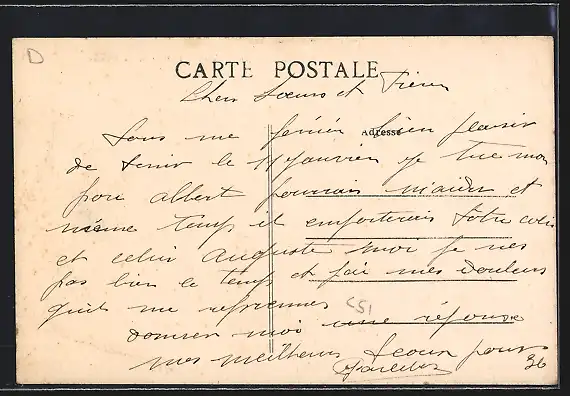 D
CARTE POSTALE
Chers Sœurs et Frères
Adresse
Vous me feriez bien plaisir
de venir le 11 Janvier je tue mon
porc Albert pourrais m'aider et
même temp il emporterais Votre colis
et celui Auguste moi je nes
pas bien le temp et j'ai mes douleurs
qui me reprennes 551
donner moi une réponse
mes meilleurs pour
36